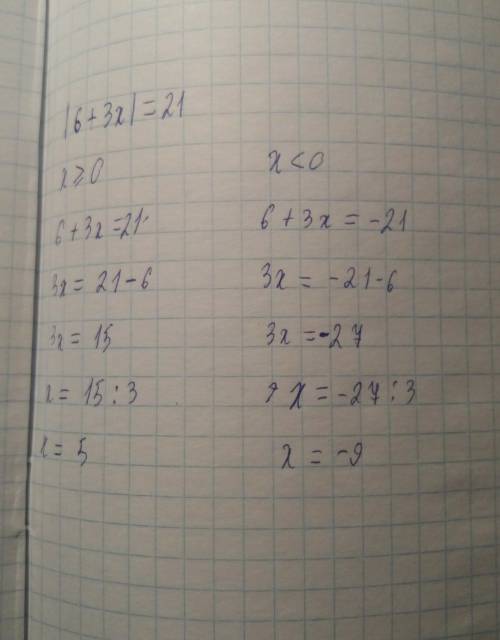 |6+3x|=21
x⩾0
x<0
6+3x=21
6+3x=-21
3x=21-6
3x=-21-6
3x=15
3x=-27
x=15:3
x=-27:3
x=5
x=-9